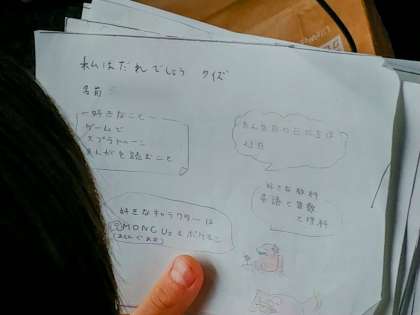 私はだれでしょう クイズ
名前
好きなこと
ゲームで
スプラトゥーン
まんがを読むこと
たん生日の日にちは
好きな教科
英語と算数
と理科
好きなキャラクターは
AMONG USとポケモン